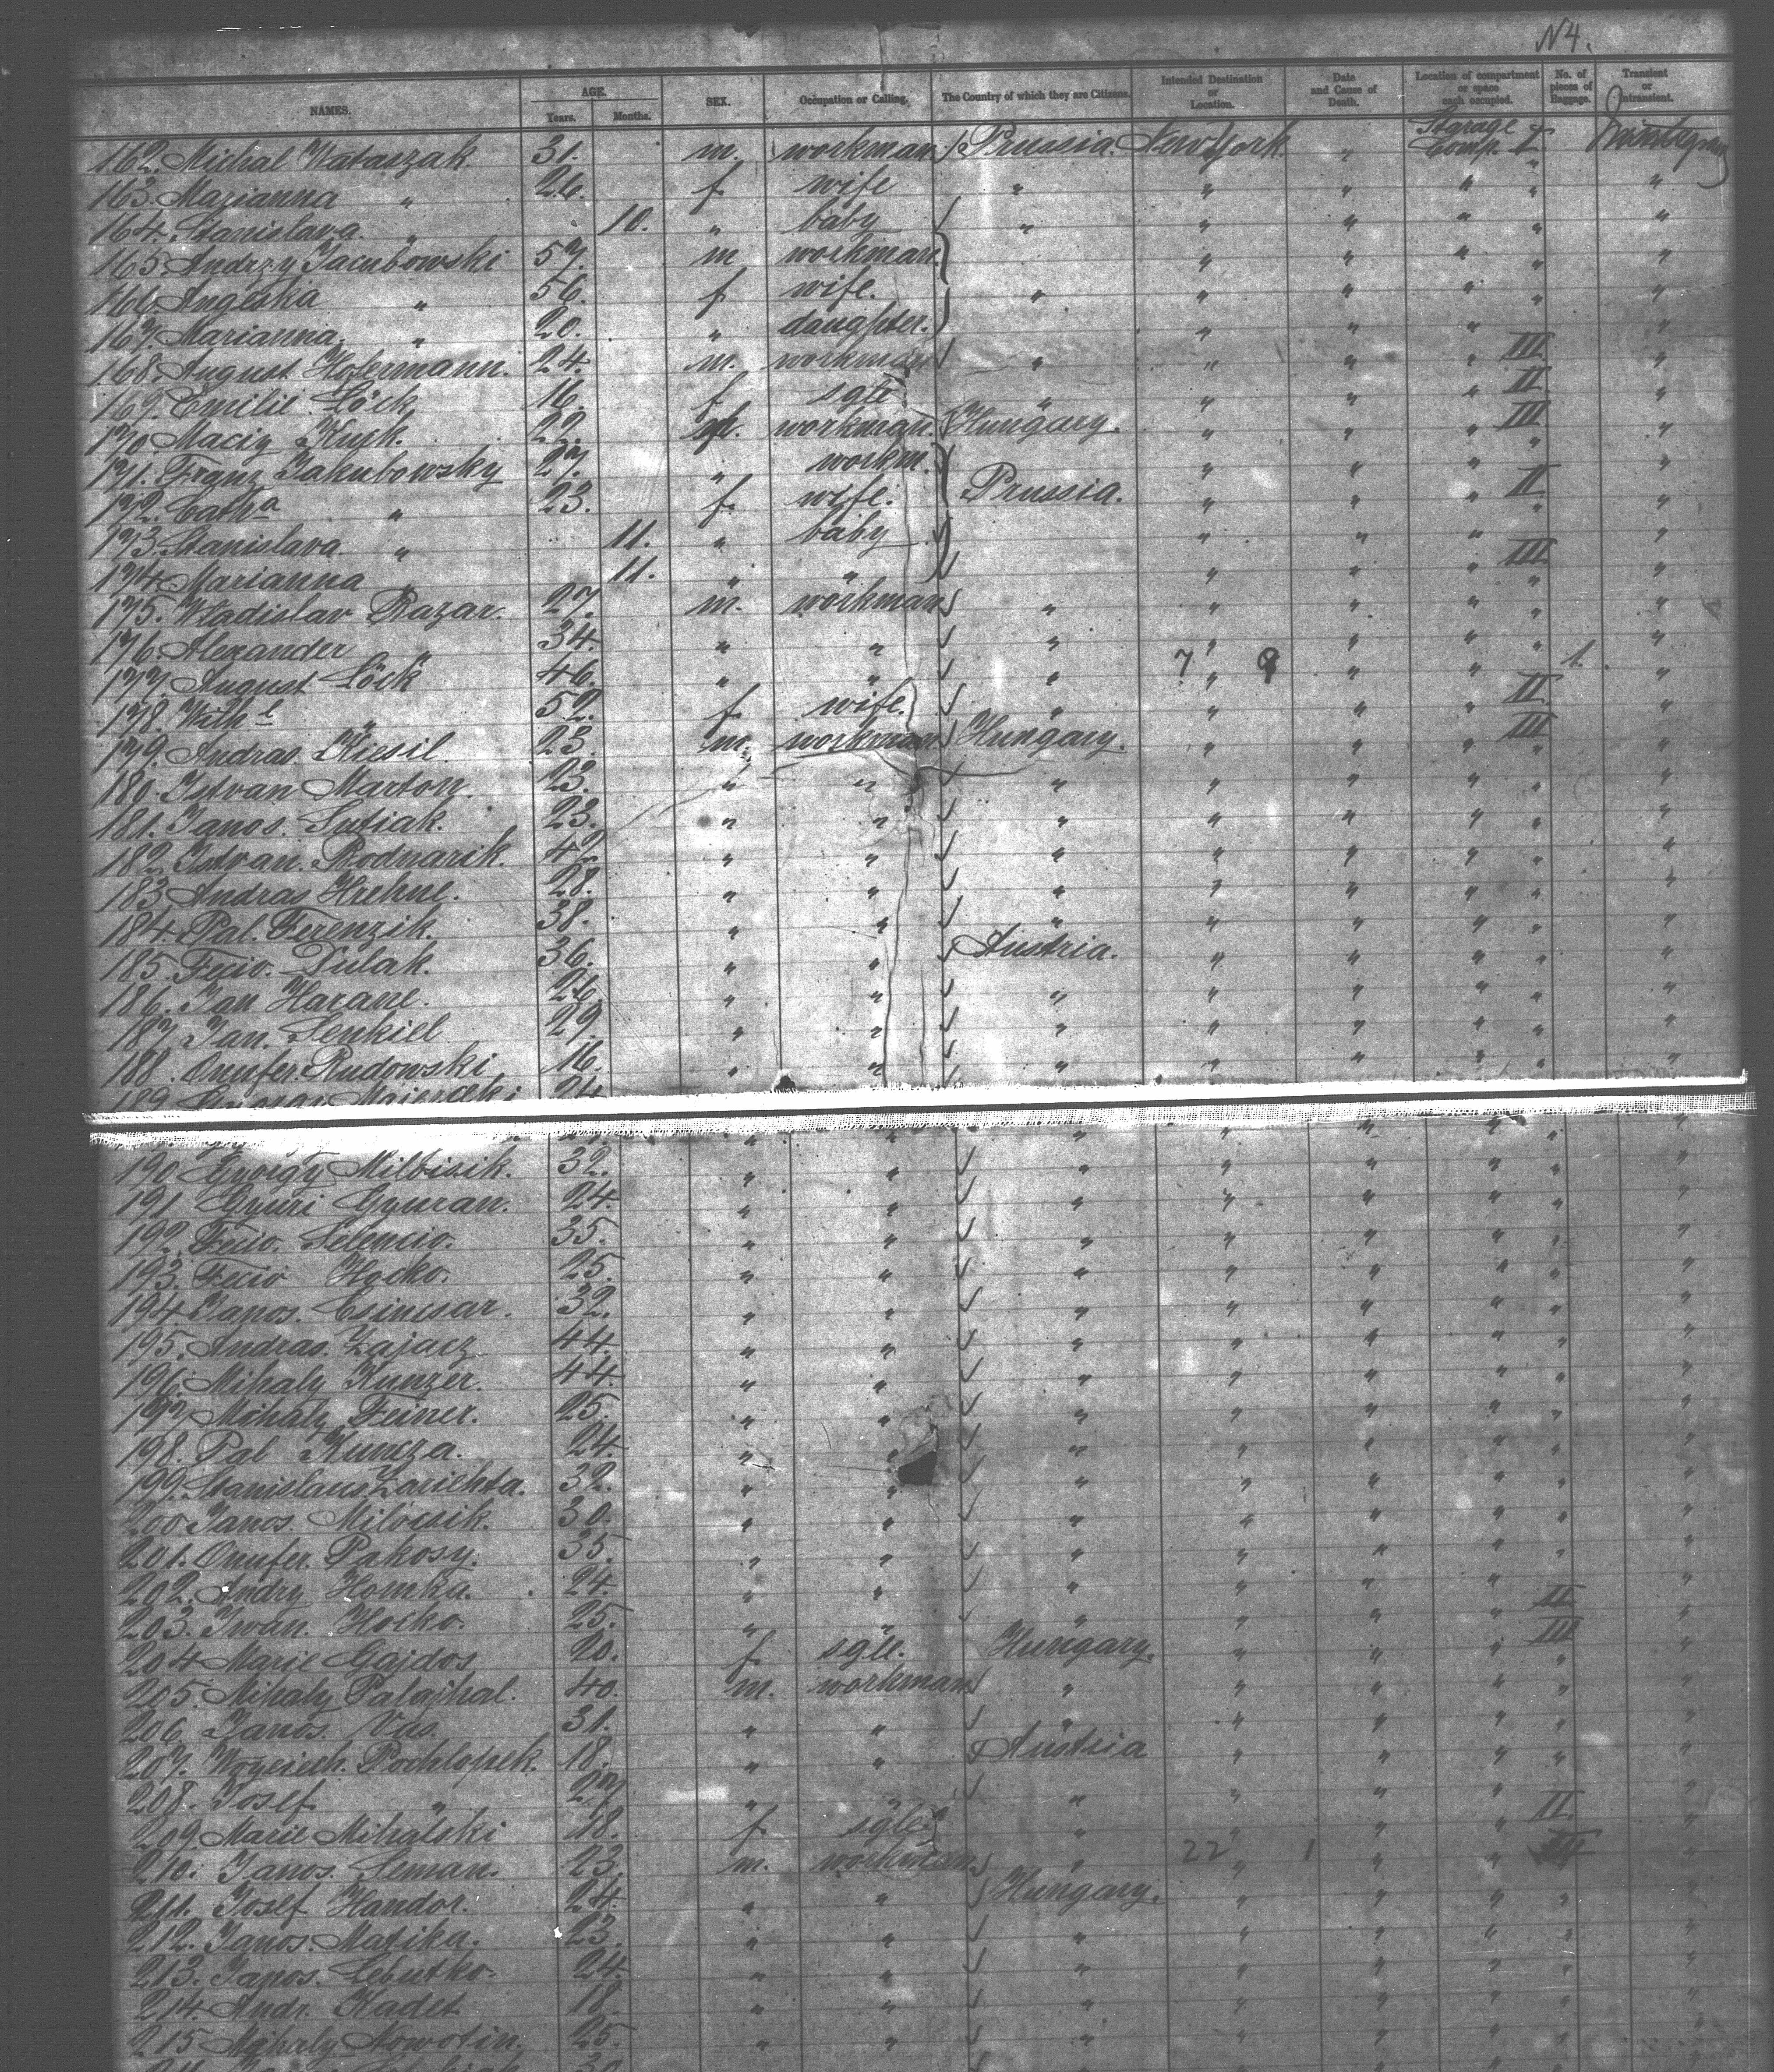 N4.
NAMES. AGE. Years. Months. SEX. Occupation or Calling. The Country of which they are Citizens. Intended Destination or Location. Date and Cause of Death. Location of compartment or space each occupied. No. of pieces of Baggage. Transient or Intransient.
162. Michal Wataszak. 31. m. workman Prussia. New York. " Starage Comp. I "
163. Marianna " 26. f wife " " " " " "
164. Stanislava. " 10. " baby " " " " " "
165. Andrzy Jacubowski 57. m workman. " " " " "
166. Angeska " 56. f wife. " " " " " "
167. Marianna. " 20. " daughter. " " " " "
168. August Holermann. 24. m. workman " " " " III "
169. Emilie Löck 16. f sgle " " " " II "
170. Maciy Kusk. 22. m. workman. Hungary. " " " III "
171. Franz Jakubowsky 27. " workm. " " " " "
172. Catha " 23. f. wife. Prussia. " " " II "
173. Stanislava. " 11. " baby " " " " "
174. Marianna " 11. " " " " " III "
175. Wladislav Razar. 27. m. workman " " " " " "
176. Alexander " 34. " " " " " " " "
177. August Löck 46. " " " 7 " 9 " " 1. "
178. Wilhl " 52. f. wife. " " " " II "
179. Andras. Kiesil. 23. m. workman Hungary. " " " III "
180. Istvan Marton. 23. " " " " " " " "
181. Janos. Sutiak. 23. " " " " " " " "
182. Istvan. Rodnarik. 42 " " " " " " " "
183 Andras Hrehne. 28. " " " " " " " "
184. Pal. Ferenzik. 38. " " " " " " " "
185. Fecio. Dulak. 36. " " Austria. " " " " "
186. Jan Harane. 26. " " " " " " " "
187. Jan. Senkiel 29. " " " " " " " "
188. Onufer. Rudowski 16. " " " " " " " "
189. Majercki 24.
190. György Milbisik. 32. " " " " " " " "
191 Gyuri Gyuran. 24. " " " " " " " "
192. Fecio. Selencio. 35. " " " " " " " "
193. Fecio Hocko. 25. " " " " " " " "
194. Janos. Csincsar. 32. " " " " " " " "
195. Andras. Zajacz 44. " " " " " " " "
196. Mihaly Kunzer. 44. " " " " " " " "
197. Mihaly Feiner. 25. " " " " " " " "
198. Pal Kuncza. 24. " " " " " " " "
199. Stanislaus Zarichta. 32. " " " " " " " "
200 Janos. Milocsik. 30. " " " " " " " "
201. Onufer. Pakosy. 35. " " " " " " " "
202. Andry Homka. 24. " " " " " " " "
203. Iwan. Hocko. 25. " " " " " " II "
204 Marie Gajdos 20. f sgle. Hungary. " " " III "
205. Mihaly Palajhal. 40. m. workman " " " " " "
206. Janos. Vas. 31. " " " " " " " "
207. Woyciech. Pochlopek. 18. " " Austria " " " " "
208. Josef " 27 " " " " " " " "
209. Marie Mihalski 18. f sgle. " " " " II. "
210. Janos. Seman. 23. m. workman. " 22 " 1 " " III "
211. Josef Handor. 24. " " Hungary. " " " " "
212. Janos. Matika. 23. " " " " " " " "
213. Janos. Lebutko. 24. " " " " " " " "
214. Andr. Kadet 18. " " " " " " " "
215 Mihaly Nowotin. 25. " " " " " " " "
30.